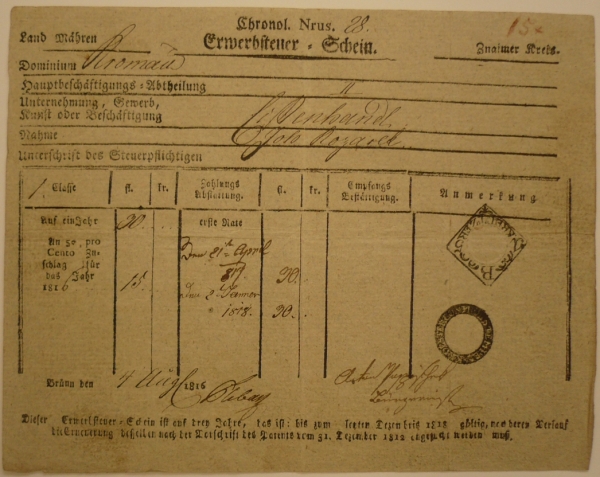 Chronol. Nrus. 28.
15x
Land Mähren
Erwerbsteuer-Schein.
Znaimer Kreis.
Dominium Kromau
Hauptbeschäftigungs-Abtheilung II
Unternehmung, Gewerb,
Kunst oder Beschäftigung
Nahme Joh
Unterschrift des Steuerpflichtigen
1. Classe fl. kr. Zahlungs Abstattung. fl. kr. Empfangs Bestättigung. Anmerkung
Auf ein Jahr 30 erste Rate
An 50 pro
Cento Zu-
schlag für
das Jahr
1816 15.
Den 21t April
817 30.
den 2 Jenner
1818. 30.
Brünn den 4 Augl 1816
Dieser Erwerbsteuer-Schein ist auf drey Jahre, das ist: bis zum letzten Dezembris 1818 gültig, nach deren Verlauf
die Erneuerung desselben nach der Vorschrift des Patents vom 31. Dezember 1812 angesucht werden muß.